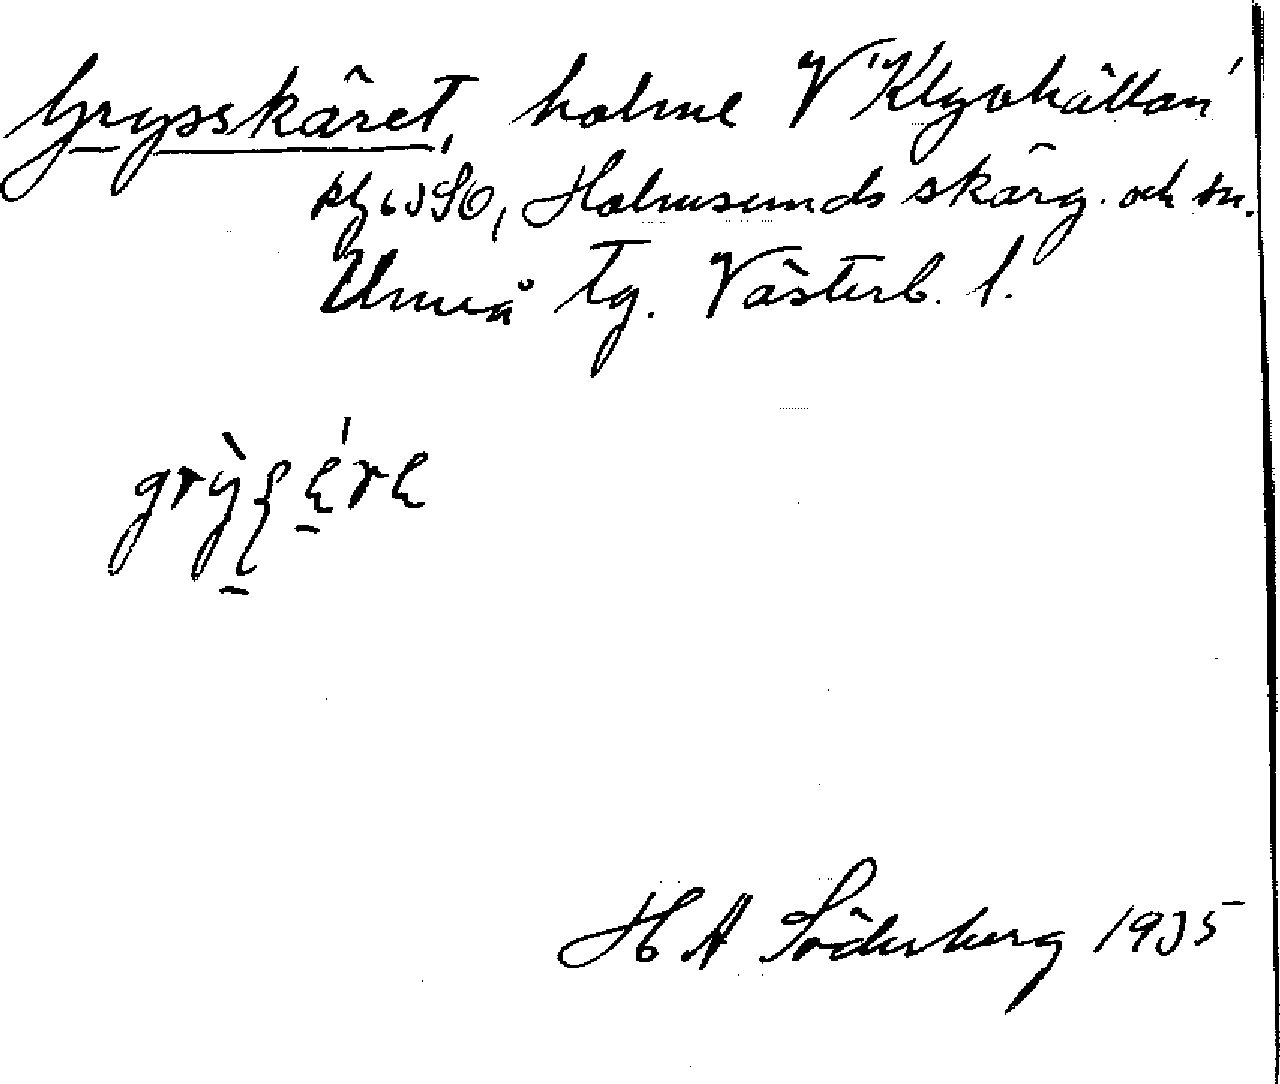 Grysskäret, holme V 'Klyvhällan'
pl 63 SO, Holmsunds skärg. och sn.
Umeå tg. Västerb. l.
H A Söderberg 1935